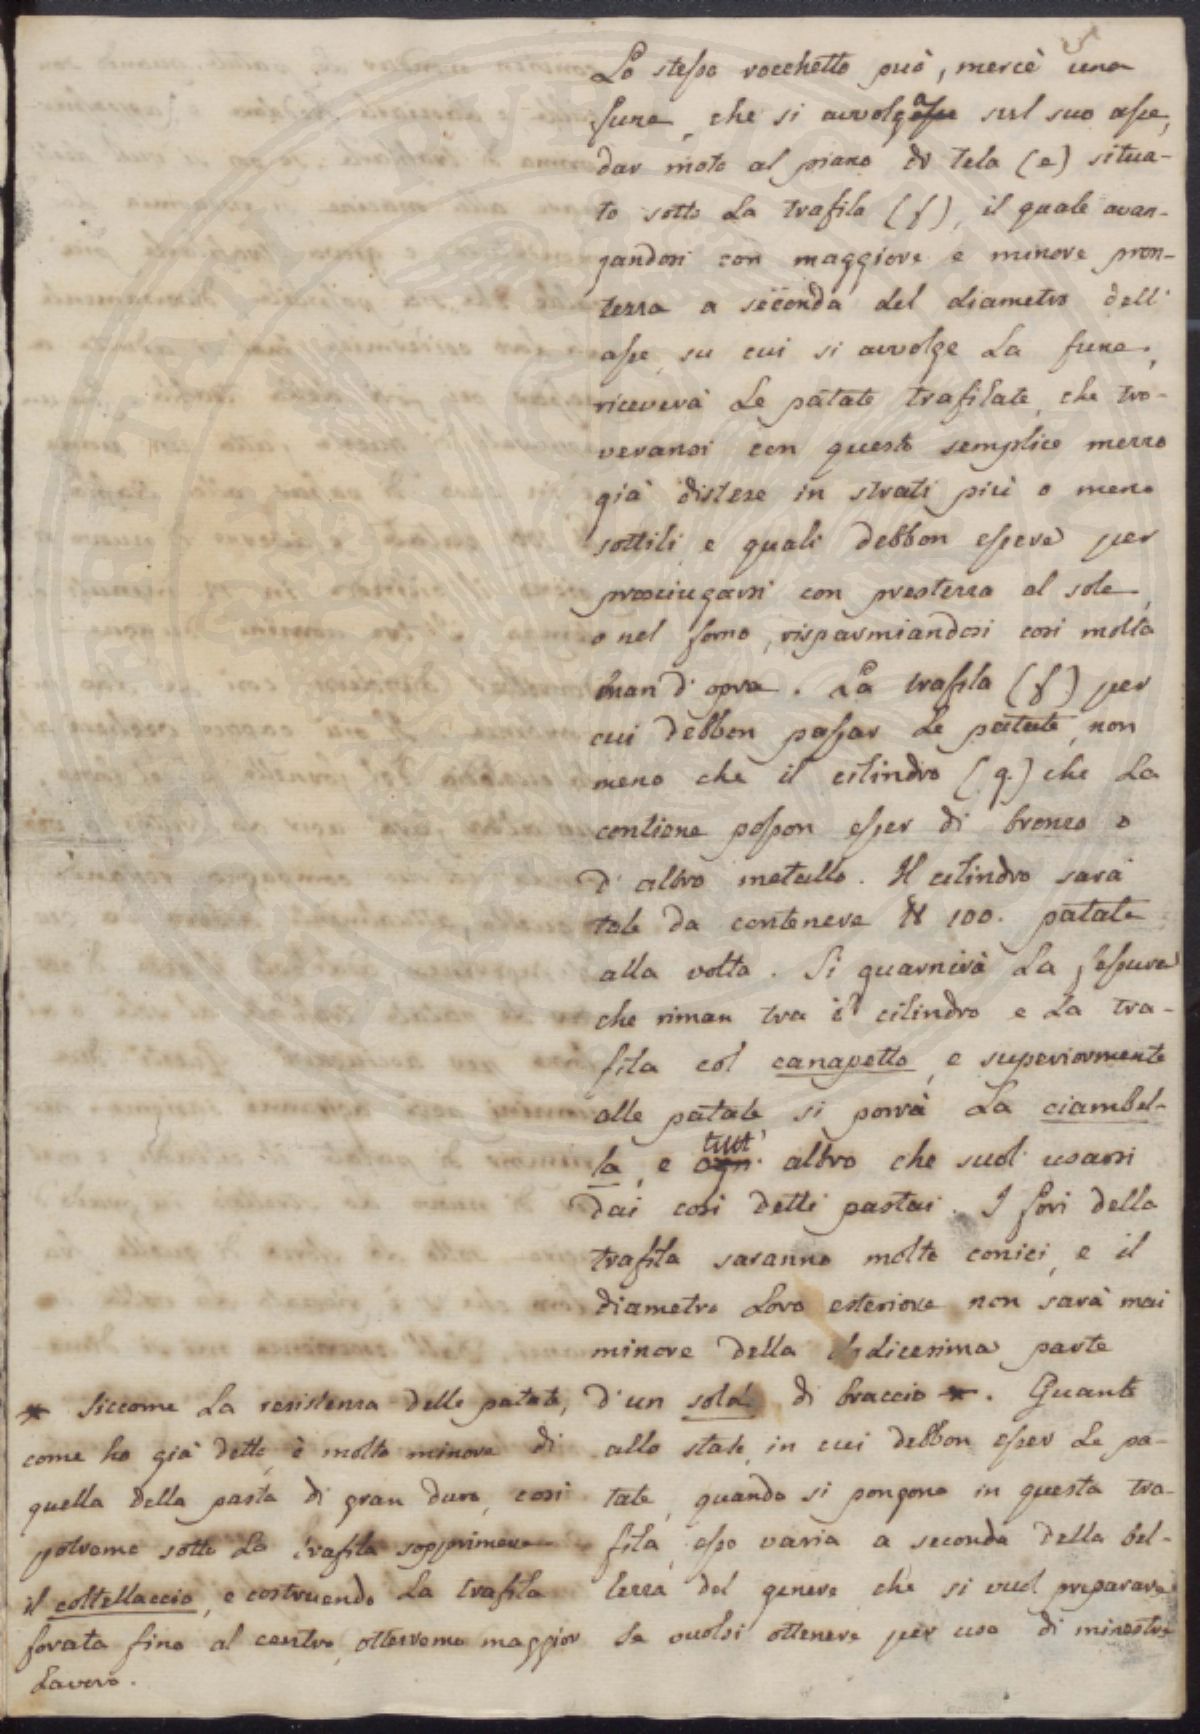 Lo stesso rocchetto può, mercè una
fune, che si avvolga sul suo asse,
dar moto al piano di tela (e) situa-
to sotto la trafila (f), il quale avan-
zandosi con maggiore e minore pron-
tezza a seconda del diametro dell'
asse su cui si avvolge la fune,
riceverà le patate trafilate, che tro-
veransi con questo semplice mezzo
già distese in strati più o meno
sottili e quali debbon essere per
prosciugarsi con prestezza al sole,
o nel forno, risparmiandosi così molta
man d'opra. La trafila (f) per
cui debbon passar le patate, non
meno che il cilindro (g.) che la
contiene posson esser di bronzo o
d'altro metallo. Il cilindro sarà
tale da contenere 100. patate
alla volta. Si guarnirà la fessura
che riman tra il cilindro e la tra-
fila col canapetto, e superiormente
alle patate si porrà la ciambel-
la, e tutt' altro che suol usarsi
dai così detti pastai. I fori della
trafila saranno molto conici, e il
diametro loro esteriore non sarà mai
minore della dodicesima parte
d'un soldo di braccio *. Quanto
allo stato, in cui debbon esser le pa-
tate, quando si pongono in questa tra-
fila, esso varia a seconda della bel-
lezza del genere che si vuol preparare
Se vuolsi ottenere per uso di minestre
* Siccome la resistenza delle patate,
come ho già detto, è molto minore di
quella della pasta di gran duro, così
potremo sotto la trafila sopprimere
il coltellaccio, e costruendo la trafila
forata fino al centro, otterremo maggior
lavoro.